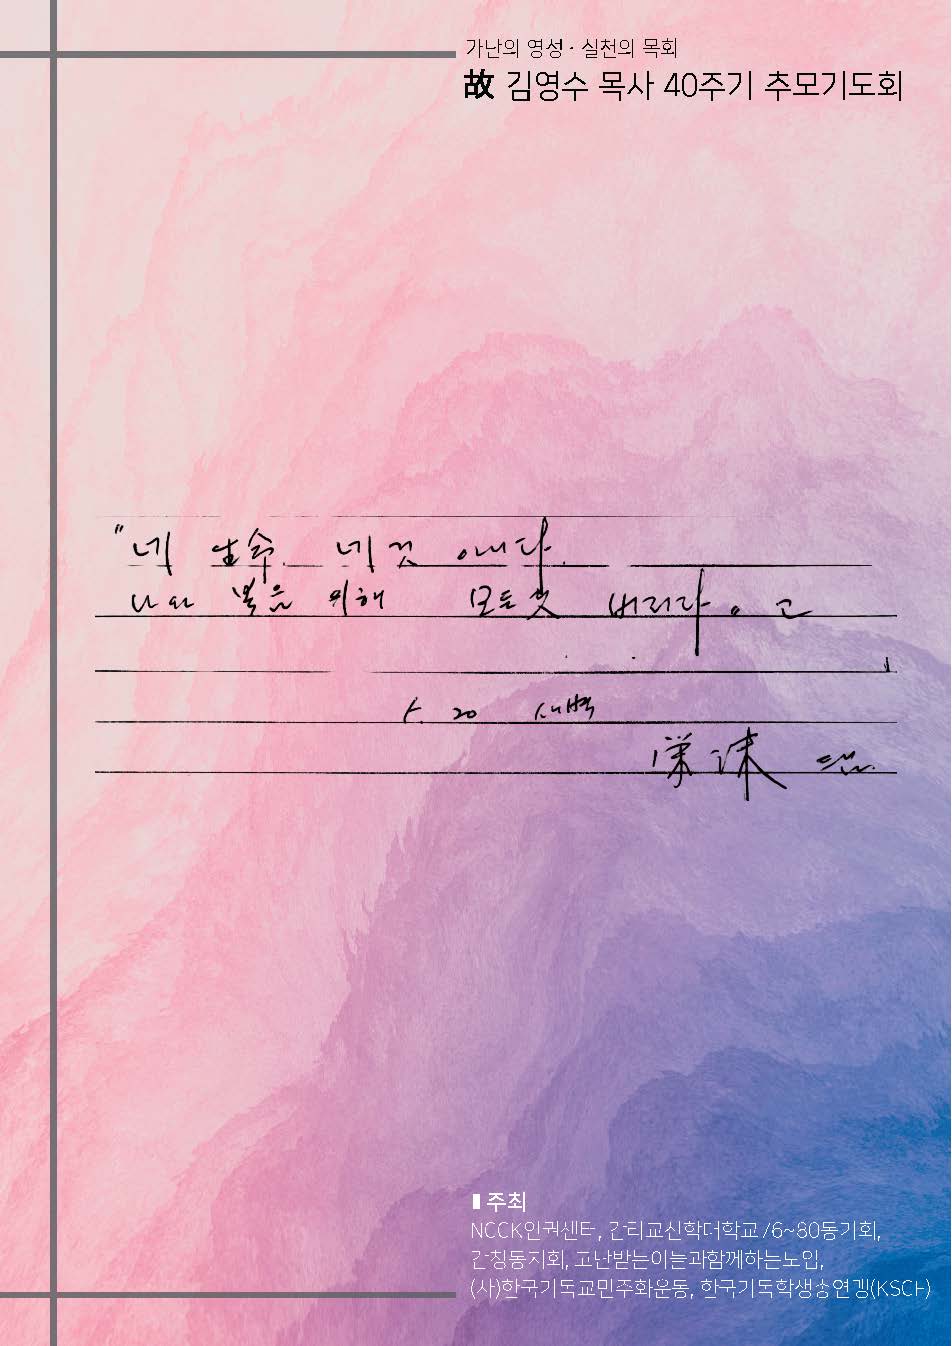 가난의 영성 · 실천의 목회
故 김영수 목사 40주기 추모기도회
"네 生命 네것 아니다.
나와 복음 위해 모든것 버리라。고
20 새벽
▮주최
NCCK인권센터, 감리교신학대학교 76~80동기회,
감청동지회, 고난받는이들과함께하는모임,
(사)한국기독교민주화운동, 한국기독학생총연맹(KSCF)